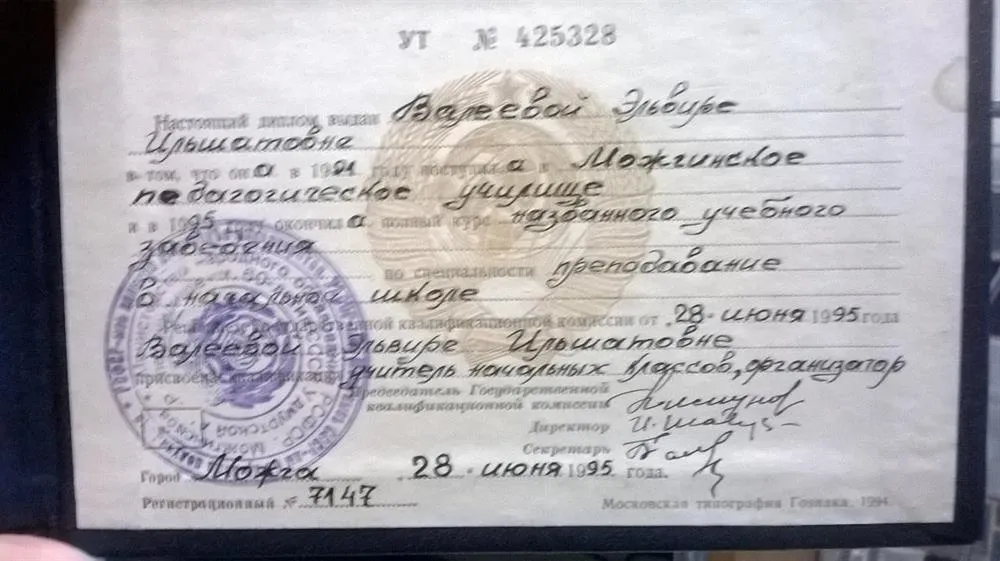 УТ № 425328
Настоящий диплом выдан Валеевой Эльвире
Ильшатовне
в том, что она в 1991 году поступила в Можгинское
педагогическое училище
и в 1995 году окончила полный курс названного учебного
заведения
по специальности преподавание
в начальной школе
Решением Государственной квалификационной комиссии от 28 июня 1995 года
Валеевой Эльвире Ильшатовне
присвоена квалификация учитель начальных классов, организатор
Председатель Государственной
квалификационной комиссии
Директор
Секретарь
Город Можга 28 июня 1995 года.
Регистрационный № 7147
Московская типография Гознака. 1994.